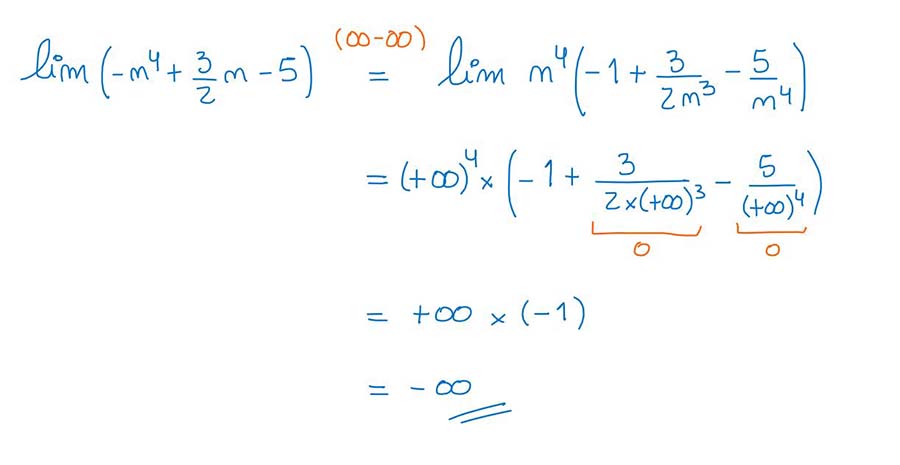 lim (-n⁴ + 3/2 n - 5) (∞-∞) = lim n⁴(-1 + 3/2n³ - 5/n⁴)
= (+∞)⁴ × (-1 + 3/2×(+∞)³ - 5/(+∞)⁴)
0 0
= +∞ × (-1)
= -∞